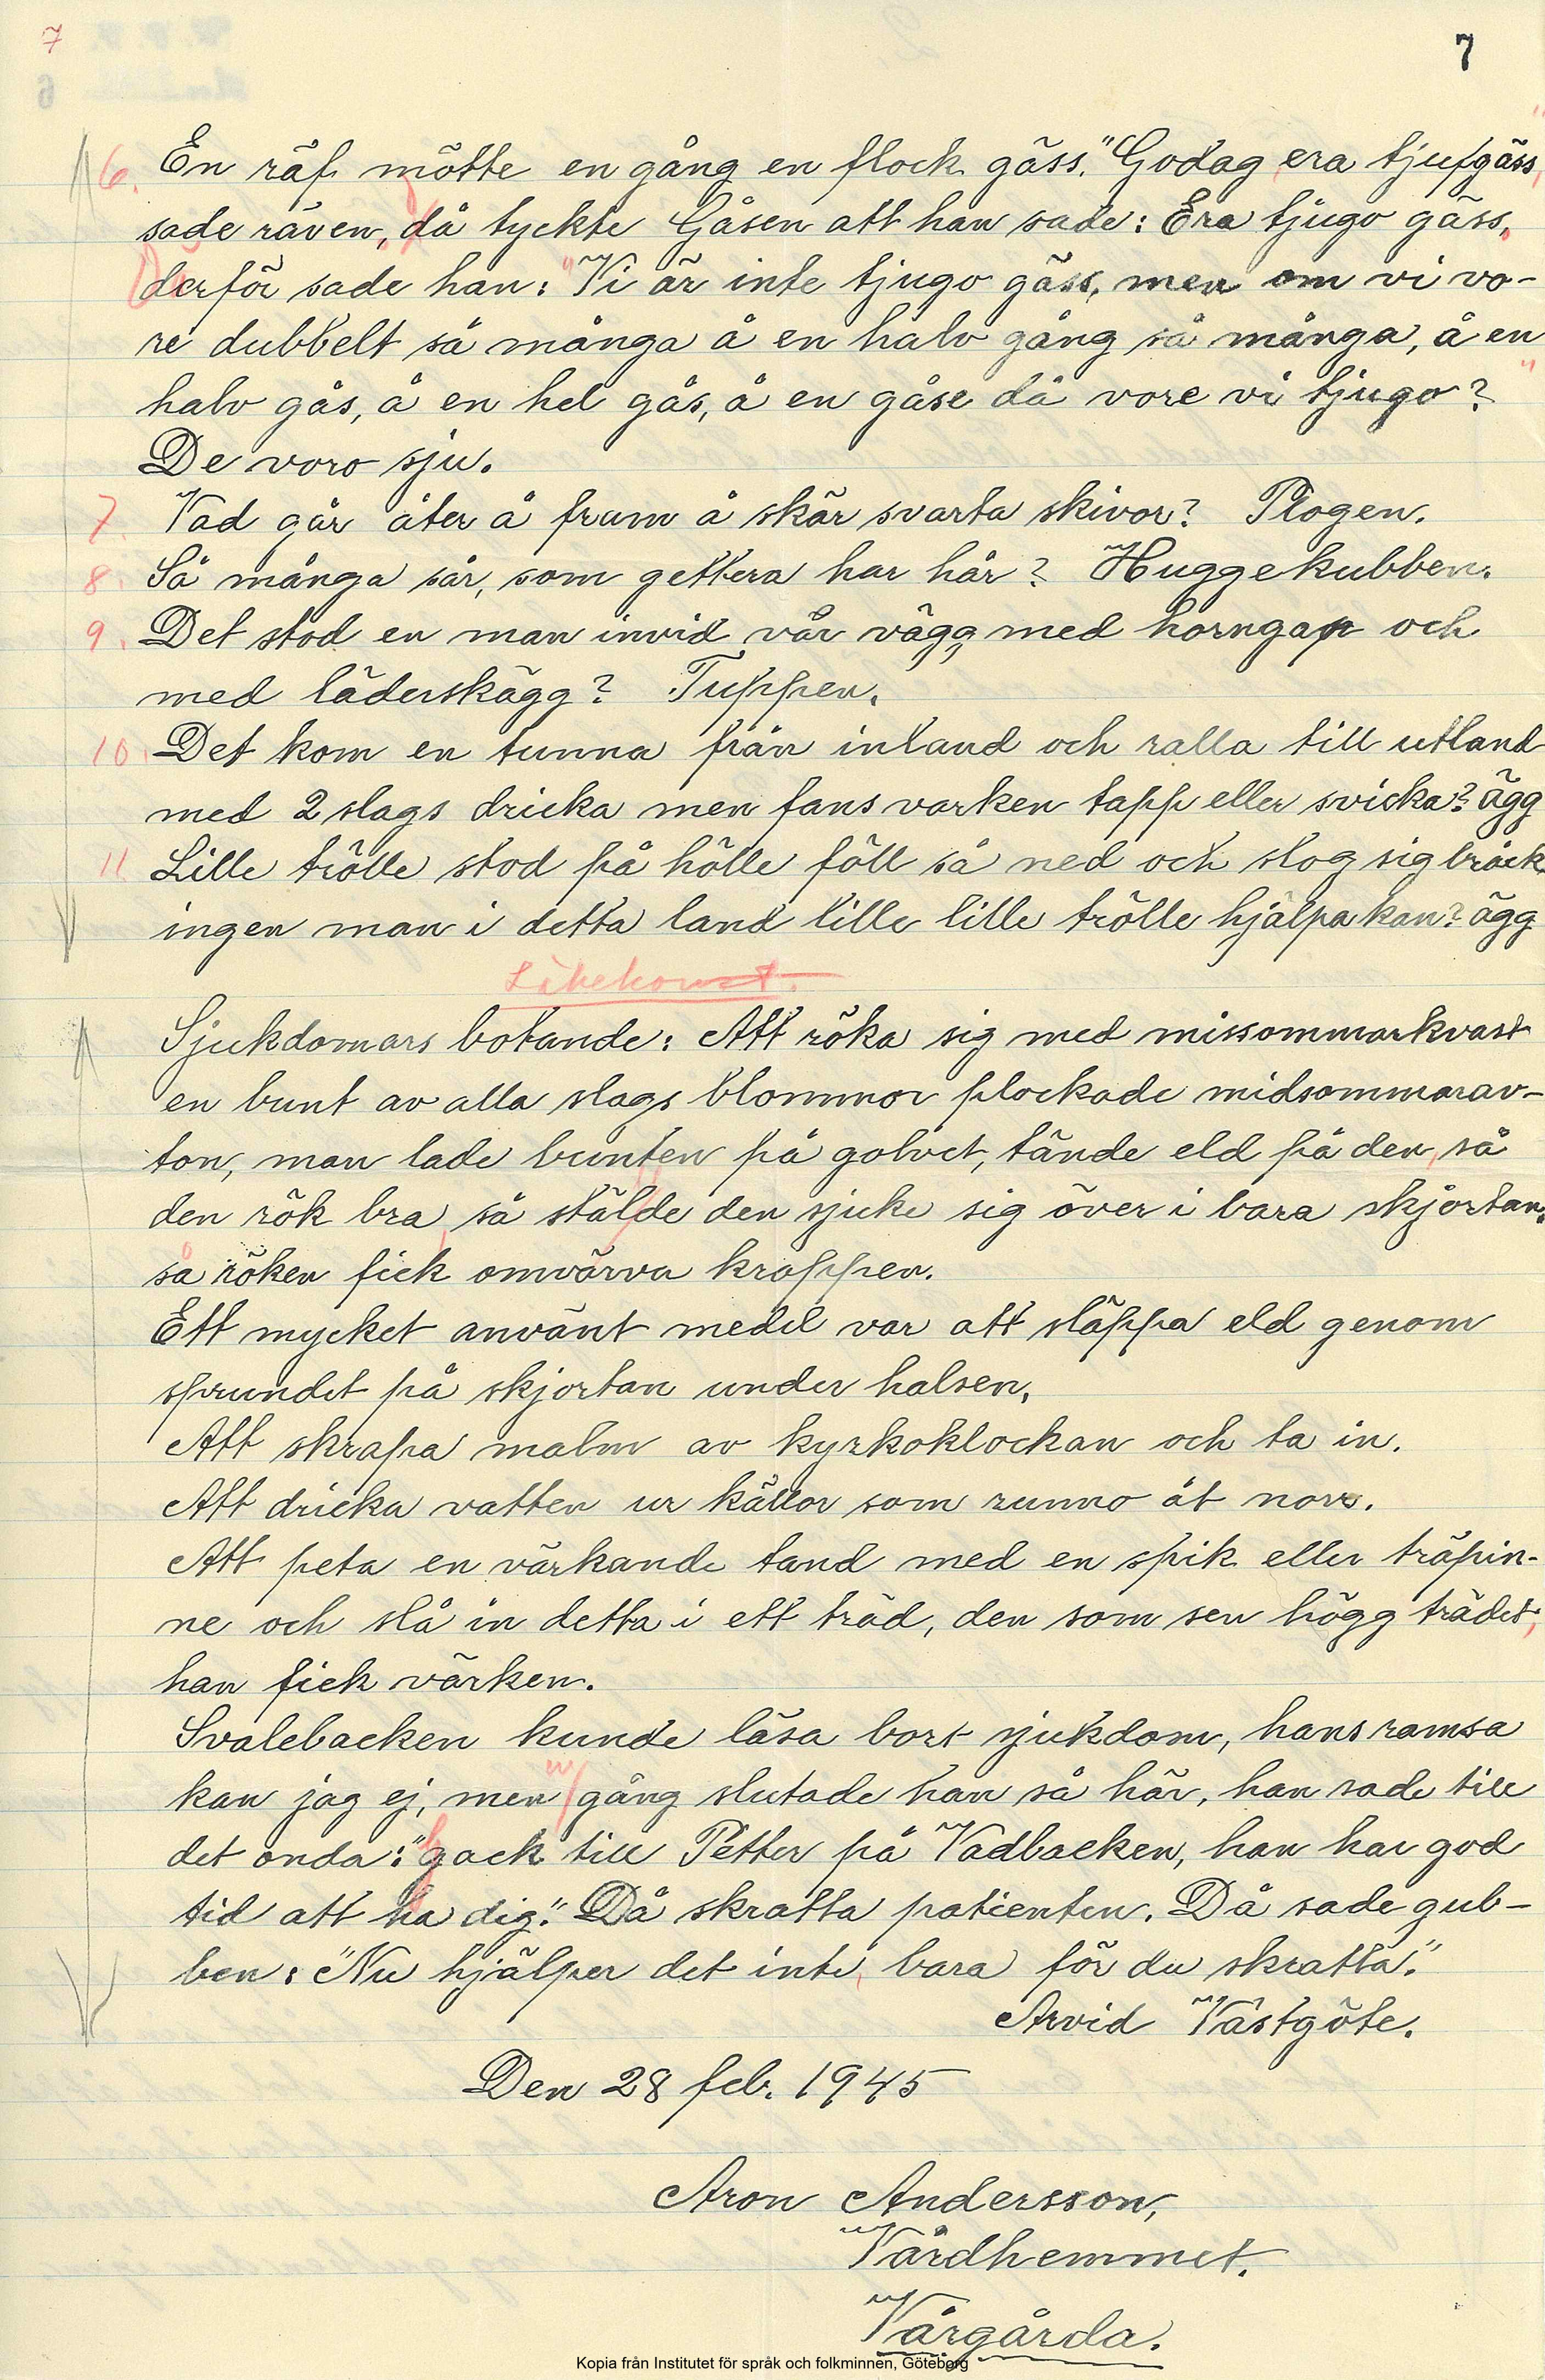 7
7
6. En räf mötte en gång en flock gäss. "Godag, era tjufgäss,"
sade räven, då tyckte Gåsen att han sade: Era tjugo gäss,
derför sade han: "Vi är inte tjugo gäss, men om vi vo-
re dubbelt så många å en halv gång så många, å en
halv gås, å en hel gås, å en gåse då vore vi tjugo?"
De voro sju.
7. Vad går åter å fram å skär svarta skivor? Plogen.
8. Så många sår, som gettera har hår? Huggekubben.
9. Det stod en man invid vår vägg, med horngap och
med läderskägg? Tuppen.
10. Det kom en tunna från inland och ralla till utland
med 2 slags dricka men fans varken tapp eller svicka? ägg
11. Lille trölle stod på hölle föll så ned och slog sig bräck
ingen man i detta land lille lille trölle hjälpa kan? ägg
Läkekonst.
Sjukdomars botande: Att röka sig med missommarkvast
en bunt av alla slags blommor plockade midsommarav-
ton, man lade bunten på golvet, tände eld på den, så
den rök bra, så stälde den sjuke sig över i bara skjortan.
så röken fick omvärva kroppen.
Ett mycket använt medel var att släppa eld genom
sprundet på skjortan under halsen.
Att skrapa malm av kyrkoklockan och ta in.
Att dricka vatten ur källor som runno åt norr.
Att peta en värkande tand med en spik eller träpin-
ne och slå in detta i ett träd, den som sen högg trädet,
han fick värken.
Svalebacken kunde läsa bort sjukdom, hans ramsa
kan jag ej, men en gång slutade han så här, han sade till
det onda: "gack till Petter på Vadbacken, han har god
tid att ha dig." Då skratta patienten. Då sade gub-
ben: "Nu hjälper det inte, bara för du skratta."
Arvid Västgöte.
Den 28 feb. 1945
Aron Andersson,
Vårdhemmet.
Vårgårda.
Kopia från Institutet för språk och folkminnen, Göteborg